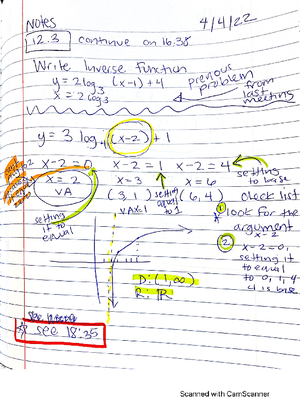 Notes 4/4/22
12.3 continue on 16:38
Write Inverse Function
y = 2 log3 (x-1) + 4
x = 2 log3
previous problem from last meeting
y = 3 log4 (x-2) + 1
x-2=0 x-2=1 x-2=4 setting to base
x=2 x=3 x=6
VA (3,1) setting equal to 1 (6,4) check list
setting it to equal
VA x=1
① look for the argument
x-2
② x-2=0, setting it to equal to 0, 1, 4
4 is base
D: (1,∞)
R: ℝ
see 18:35
Scanned with CamScanner